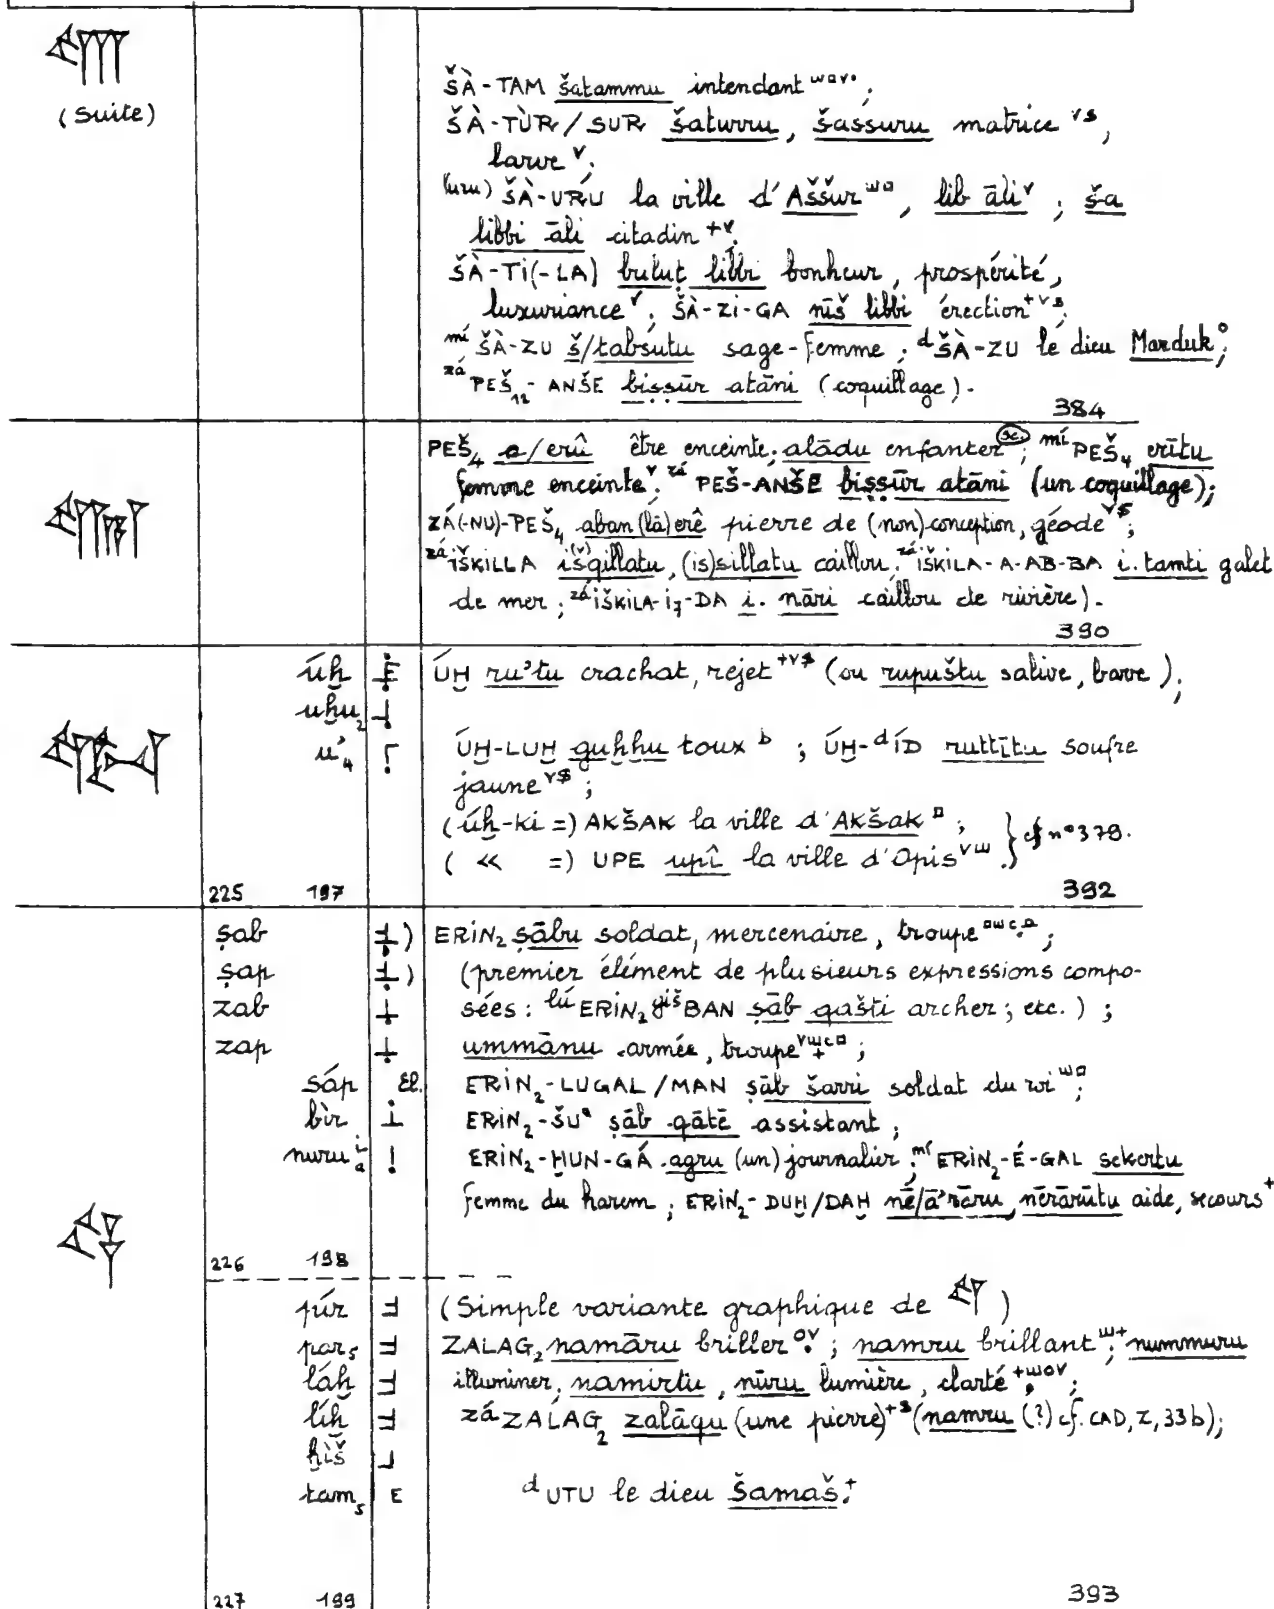 (Suite)
ŠÀ-TAM šatammu intendant ;
ŠÀ-TÙR/SUR šaturru, šassuru matrice ,
larve ;
(uru) ŠÀ-URU la ville d'Aššur , lib āli ; ša
libbi āli citadin
ŠÀ-TI(-LA) buluṭ libbi bonheur, prospérité,
luxuriance ; ŠÀ-ZI-GA nīš libbi érection
mí ŠÀ-ZU š/tabsūtu sage-femme ; d ŠÀ-ZU le dieu Marduk ;
zá PEŠ12-ANŠE biṣṣūr atāni (coquillage).
384
PEŠ4 a/erû être enceinte; alādu enfanter ; mí PEŠ4 erītu
femme enceinte ; zá PEŠ-ANŠE biṣṣūr atāni (un coquillage);
ZÁ(-NU)-PEŠ4 aban (lā) erê pierre de (non) conception, géode ;
zá IŠKILLA išqillatu, (is)sillatu caillou; zá IŠKILA-A-AB-BA i. tamti galet
de mer ; zá IŠKILA-I7-DA i. nāri caillou de rivière).
390
úḫ ÚḪ ru'tu crachat, rejet (ou rupuštu salive, bave ) ;
uḫu2
u'4 ÚḪ-LUḪ guḫḫu toux b ; ÚḪ-d ÍD ruttītu soufre
jaune ;
(úḫ-ki =) AKŠAK la ville d'Akšak ;
( « =) UPE upî la ville d'Opis } cf n° 379.
225 197 392
ṣab ERIN2 ṣābu soldat, mercenaire, troupe ;
ṣap (premier élément de plusieurs expressions compo-
zab sées : lú ERIN2 giš BAN ṣāb qašti archer ; etc. ) ;
zap ummānu armée, troupe ;
sáp él. ERIN2-LUGAL/MAN ṣāb šarri soldat du roi ;
bìr ERIN2-ŠU ṣāb qātē assistant ;
nuru i a ERIN2-ḪUN-GÁ agru (un) journalier ; mí ERIN2-É-GAL sekertu
femme du harem ; ERIN2-DUḪ/DAḪ nē/ā'rāru, nērārūtu aide, secours +
226 198
púr (Simple variante graphique de )
par5 ZALAG2 namāru briller ; namru brillant ; nummuru
láḫ illuminer, namirtu, nūru lumière, clarté ;
líḫ zá ZALAG2 zalāqu (une pierre) (namru (?) cf. CAD, Z, 33b);
ḫiš
tam5 d UTU le dieu Šamaš. +
227 199 393